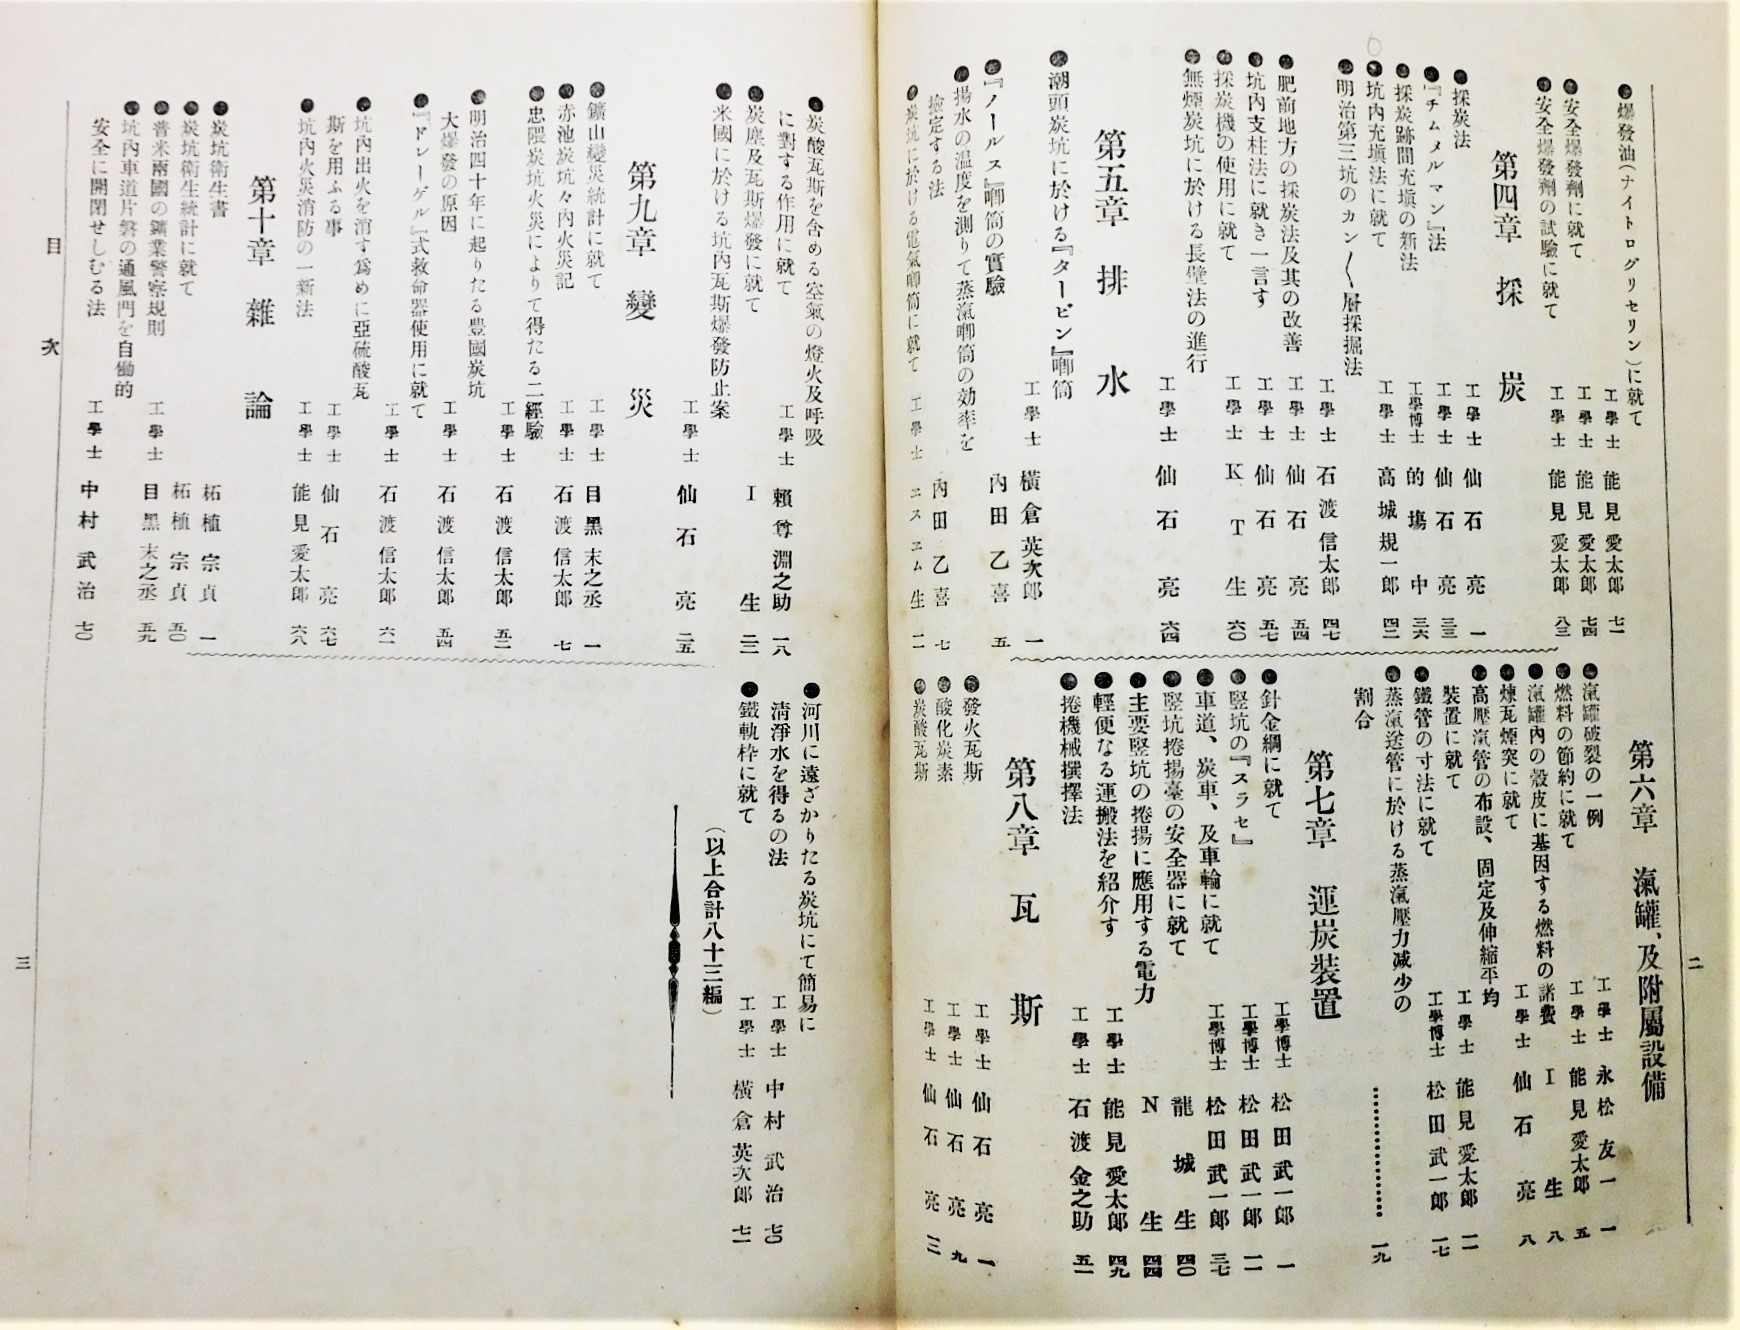 二
●爆發油(ナイトログリセリン)に就て 工學士 能見愛太郎 七一
●安全爆發劑に就て 工學士 能見愛太郎 七四
●安全爆發劑の試驗に就て 工學士 能見愛太郎 八三
第四章 採炭
●採炭法 工學士 仙石亮 一
●『チムメルマン』法 工學士 仙石亮 三三
●採炭跡間充塡の新法 工學博士 的塲中 三六
●坑内充塡法に就て 工學士 高城規一郎 四二
●明治第三坑のカン〱層採掘法
工學士 石渡信太郎 四七
●肥前地方の採炭法及其の改善 工學士 仙石亮 五四
●坑内支柱法に就き一言す 工學士 仙石亮 五七
●採炭機の使用に就て 工學士 KT生 六〇
●無煙炭坑に於ける長壁法の進行
工學士 仙石亮 六四
第五章 排水
●潮頭炭坑に於ける『タービン』喞筒
工學士 橫倉英次郎 一
●『ノールス』喞筒の實驗 內田乙喜 五
●揚水の温度を測りて蒸氣喞筒の効率を
檢定する法 內田乙喜 七
●炭坑に於ける電氣喞筒に就て 工學士 エスエム生 一一
第六章 滊罐、及附屬設備
●滊罐破裂の一例 工學士 永松友一 一
●燃料の節約に就て 工學士 能見愛太郎 五
●滊罐内の殼皮に基因する燃料の諸費 I生 八
●煉瓦煙突に就て 工學士 仙石亮 八
●高壓滊管の布設、固定及伸縮平均
裝置に就て 工學士 能見愛太郎 一一
●鐵管の寸法に就て 工學博士 松田武一郎 一七
●蒸滊送管に於ける蒸滊壓力減少の
割合 ………… 一九
第七章 運炭裝置
●針金綱に就て 工學博士 松田武一郎 一
●竪坑の『スラセ』 工學博士 松田武一郎 一一
●車道、炭車、及車輪に就て 工學博士 松田武一郎 三七
●竪坑捲揚臺の安全器に就て 龍城生 四〇
●主要竪坑の捲揚に應用する電力 N生 四四
●輕便なる運搬法を紹介す 工學士 能見愛太郎 四九
●捲機械撰擇法 工學士 石渡金之助 五一
第八章 瓦斯
●發火瓦斯 工學士 仙石亮 一
●酸化炭素 工學士 仙石亮 九
●炭酸瓦斯 工學士 仙石亮 一三
●炭酸瓦斯を含める空氣の燈火及呼吸
に對する作用に就て 工學士 賴尊淵之助 一八
●炭塵及瓦斯爆發に就て I生 二二
●米國に於ける坑内瓦斯爆發防止案
工學士 仙石亮 二五
第九章 變災
●鑛山變災統計に就て 工學士 目黑末之丞 一
●赤池炭坑々内火災記 工學士 石渡信太郎 七
●忠隈炭坑火災によりて得たる二經驗
工學士 石渡信太郎 五二
●明治四十年に起りたる豊國炭坑
大爆發の原因 工學士 石渡信太郎 五四
●『ドレーゲル』式救命器使用に就て
工學士 石渡信太郎 六一
●坑内出火を消す爲めに亞硫酸瓦
斯を用ふる事 工學士 仙石亮 六七
●坑内火災消防の一新法 工學士 能見愛太郎 六八
第十章 雜論
●炭坑衛生書 柘植宗貞 一
●炭坑衛生統計に就て 柘植宗貞 五〇
●普米兩國の鑛業警察規則 工學士 目黑末之丞 五九
●坑内車道片磐の通風門を自働的
安全に開閉せしむる法 工學士 中村武治 七〇
●河川に遠ざかりたる炭坑にて簡易に
淸淨水を得るの法 工學士 中村武治 七〇
●鐵軌枠に就て 工學士 橫倉英次郎 七一
(以上合計八十三編)
目次
三